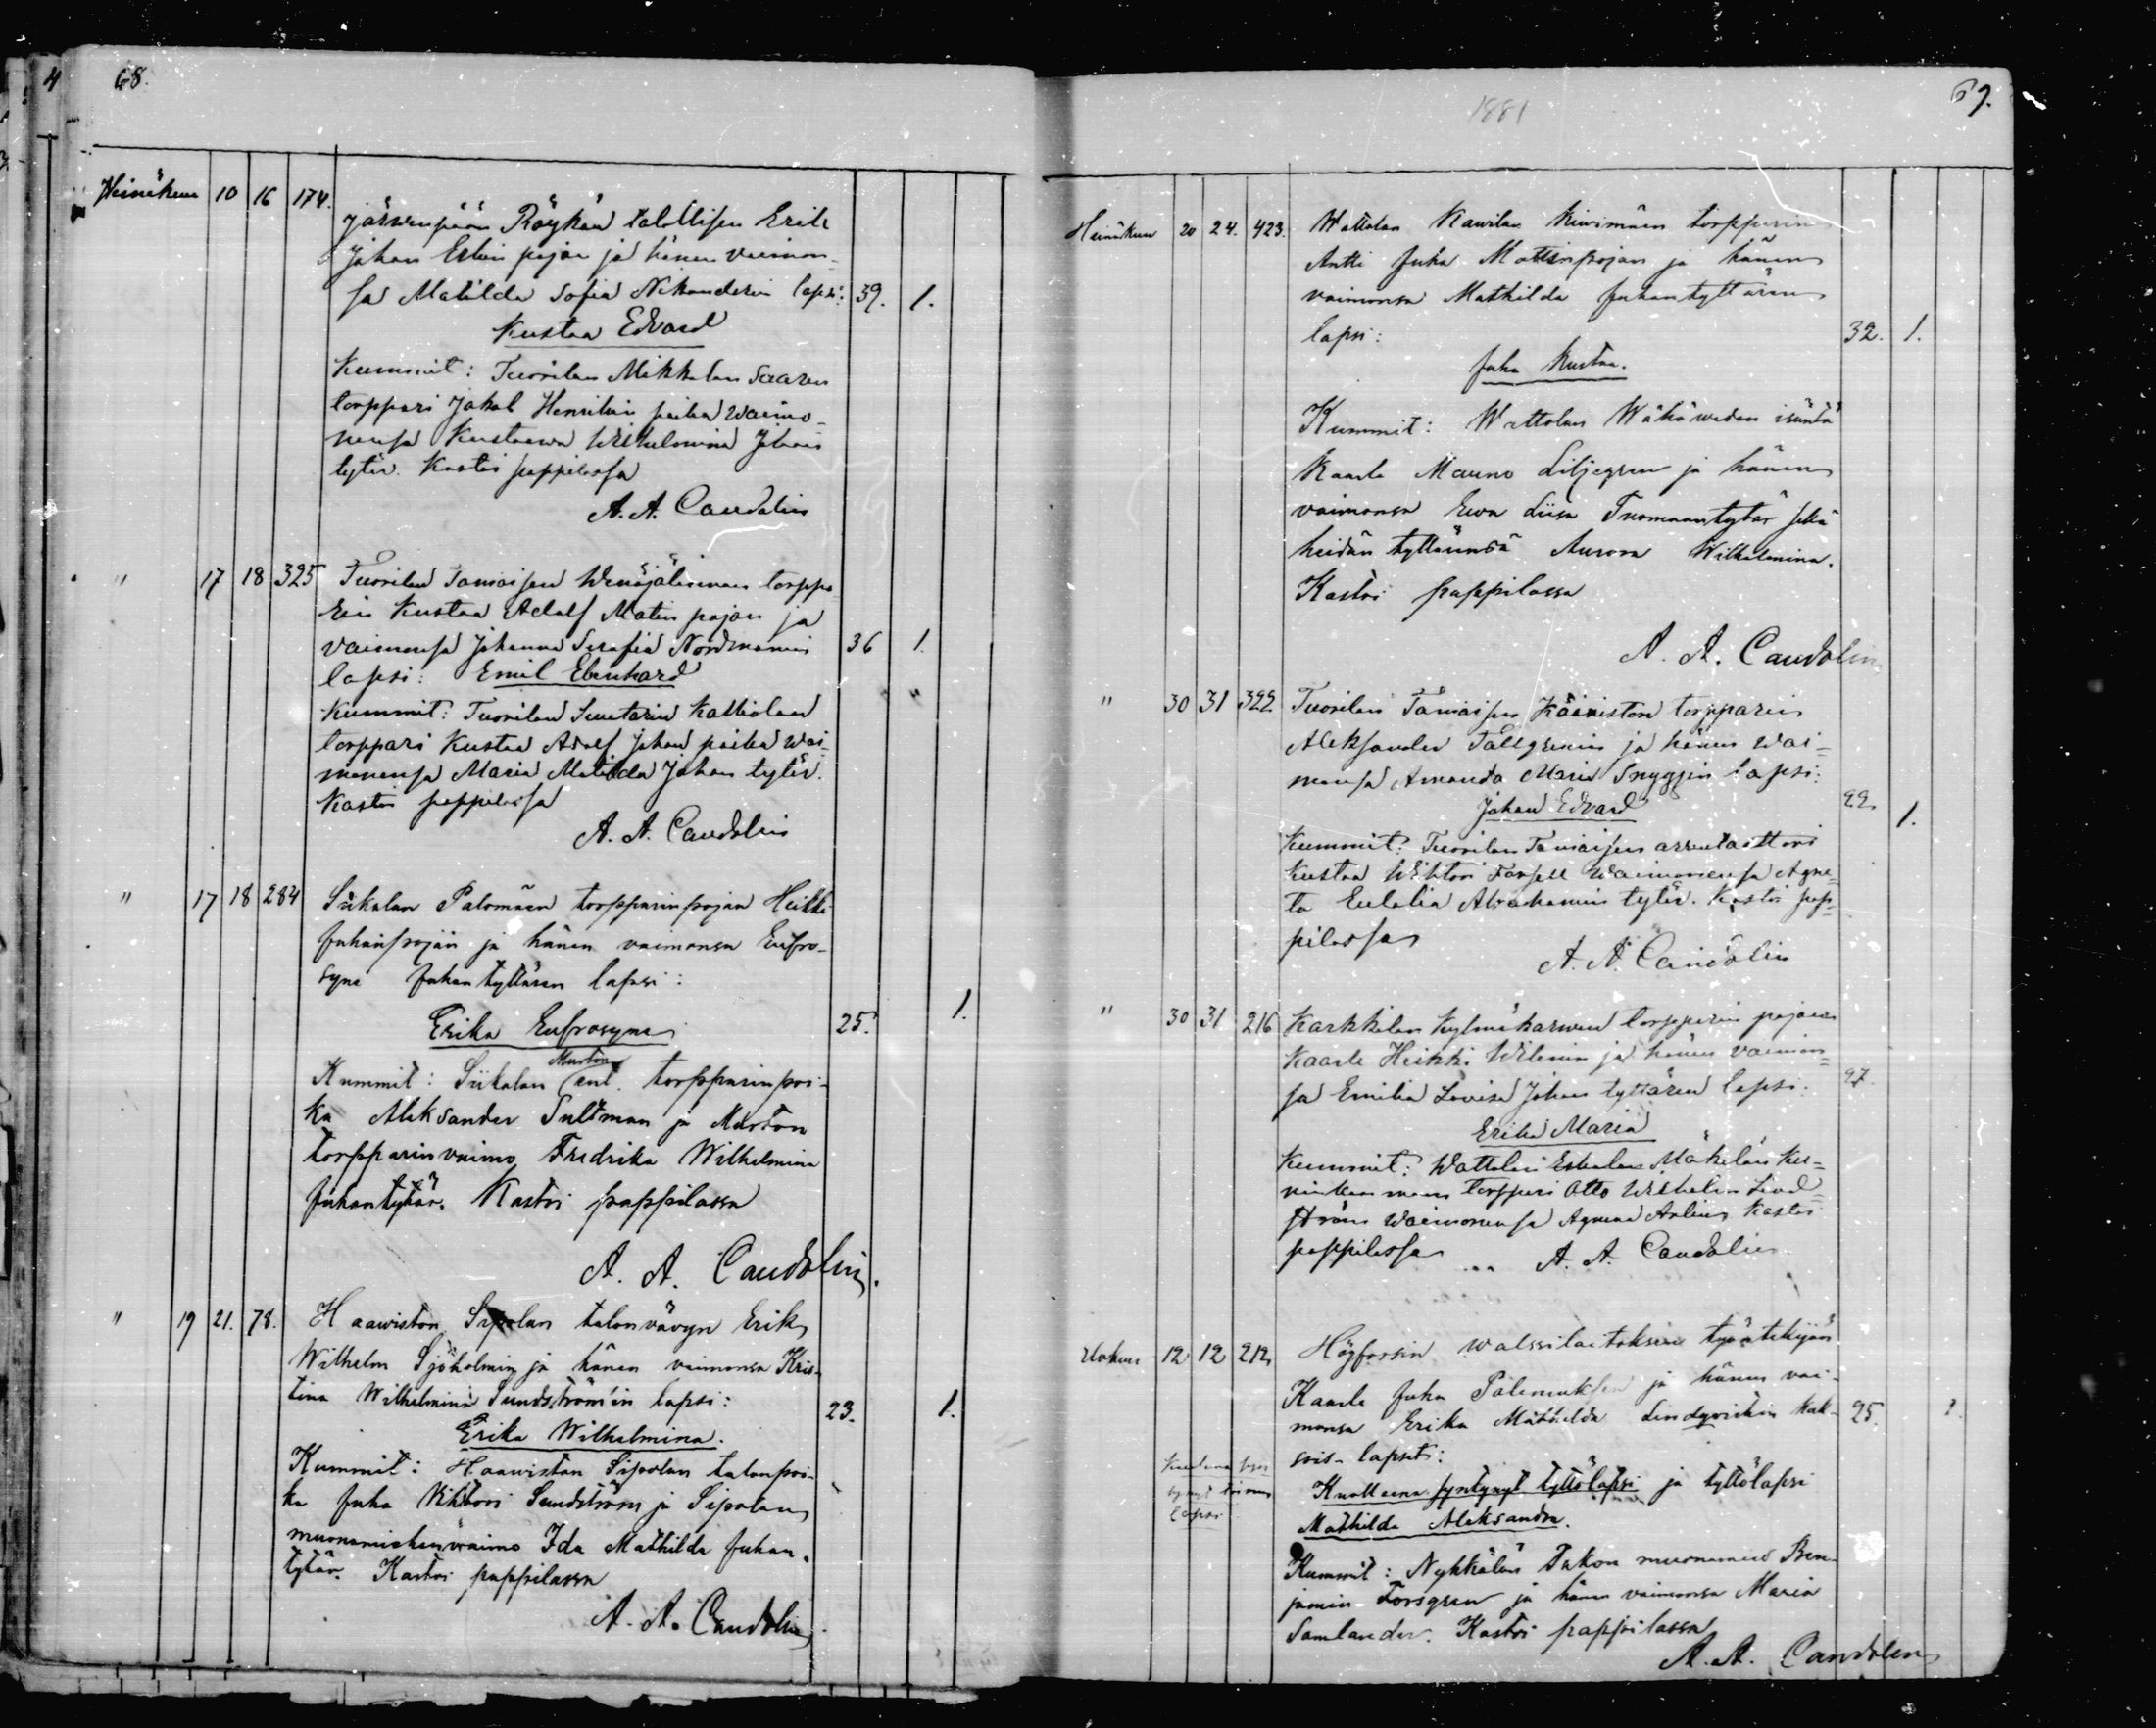 68.
Heinäkuu 10 16 174. Järvenpään Röykän talollisen Erik
Johan Eskin pojan ja hänen vaimon-
sa Matilda Sofia Nikanderin lapsi: 39. 1.
Kustaa Edvard
Kummit: Tuorilan Mikkolan Saaren
torppari Jakob Henrikin poika waimo-
nensa Kustaawa Wilhelmina Johans
tytär. Kastoi pappilassa
A. A. Candolin
" 17 18 325 Tuorilan Tamaisen Wenäjälisenmaan torppa
rin Kustaa Adolf Matin pojan ja
vaimonsa Johanna Serafia Nordmanin 36 1.
lapsi: Emil Ebenhard
Kummit: Tuorilan Suutarin Kalliolan
torppari Kustaa Adolf Johan poika wai-
monensa Maria Matilda Johan tytär.
Kastoi pappilassa
A. A. Candolin
" 17 18 284 Siikalan Palomäen torpparinpojan Heikki
Juhanpojan ja hänen vaimonsa Eufro-
syne Juhantyttären lapsi:
Erika Eufrosyne 25. 1.
Mustan
Kummit: Siikalan ent. torpparinpoi-
ka Aleksander Sultman ja Mustan
torpparinvaimo Fredrika Wilhelmina
Juhantytär. Kastoi pappilassa
A. A. Candolin.
" 19 21. 78. Haawiston Sipolan talonvävyn Erik
Wilhelm Sjöholmin ja hänen vaimonsa Kris-
tina Wilhelmina Sundströmin lapsi: 23. 1.
Erika Wilhelmina.
Kummit: Haawiston Sipolan talonpoi-
ka Juha Viktori Sundström ja Sipolan
muonamiehenvaimo Ida Mathilda Juhan-
tytär. Kastoi pappilassa
A. A. Candolin
1881
69.
Heinäkuu 20 24. 423. Wattolan Kaurilan Kiwimäen torpparin
Antti Juha Matinpojan ja hänen
vaimonsa Mathilda Juhantyttären
lapsi: 32. 1.
Juha Kustaa.
Kummit: Wattolan Wähäwedan isäntä
Kaarle Mauno Liljegren ja hänen
vaimonsa Ewa Liisa Tuomaantytär sekä
heidän tyttärensä Aurora Wilhelmina.
Kastoi pappilassa
A. A. Candolin
" 30 31 322 Tuorilan Tamaisen Koiviston torpparin
Aleksander Tallgrenin ja hänen wai-
monsa Amanda Maria Snyggin lapsi:
Johan Edvard 22. 1.
Kummit: Tuorilan Tamaisen
Kustaa Wihtori Forsell waimonensa Agne-
ta Eulalia Abrahamin tytär. Kastoi pap-
pilassa
A. A. Candolin
" 30 31 216 Karkkilan Kylmäkarwen torpparin pojan
Kaarle Heikki Wileniin ja hänen vaimon-
sa Emilia Lovisa Johan tyttären lapsi. 27.
Erika Maria
Kummit: Wattolan Eskolan Mäkelän
torppari Otto Wilhelm Lind-
ström waimonensa Kastoi
pappilassa A. A. Candolin
Elokuu 12 12 212 Högforsin walssilaitoksen työntekijän
Kaarle Juha Palemuksen ja hänen vai-
monsa Erika Mathilda Lindqvistin kak- 25. 2.
sois-lapset:
Kuolleena syntynyt tyttölapsi ja tyttölapsi
Mathilda Aleksandra.
Kuolleena syn
tynyt toinen
lapsi
Kummit: Nyhkälän Takon muonamies Ben-
jamin Forsgren ja hänen vaimonsa Maria
Samlander. Kastoi pappilassa
A. A. Candolin